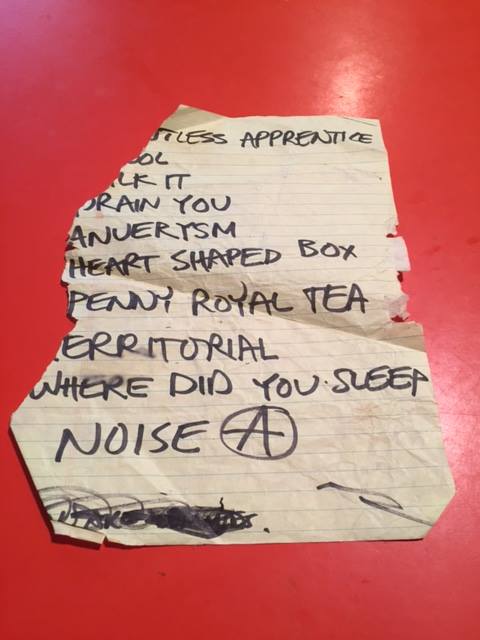 TLESS APPRENTICE
OOL
LK IT
DRAIN YOU
ANUERYSM
HEART SHAPED BOX
PENNY ROYAL TEA
ERRITORIAL
WHERE DID YOU SLEEP
NOISE Ⓐ